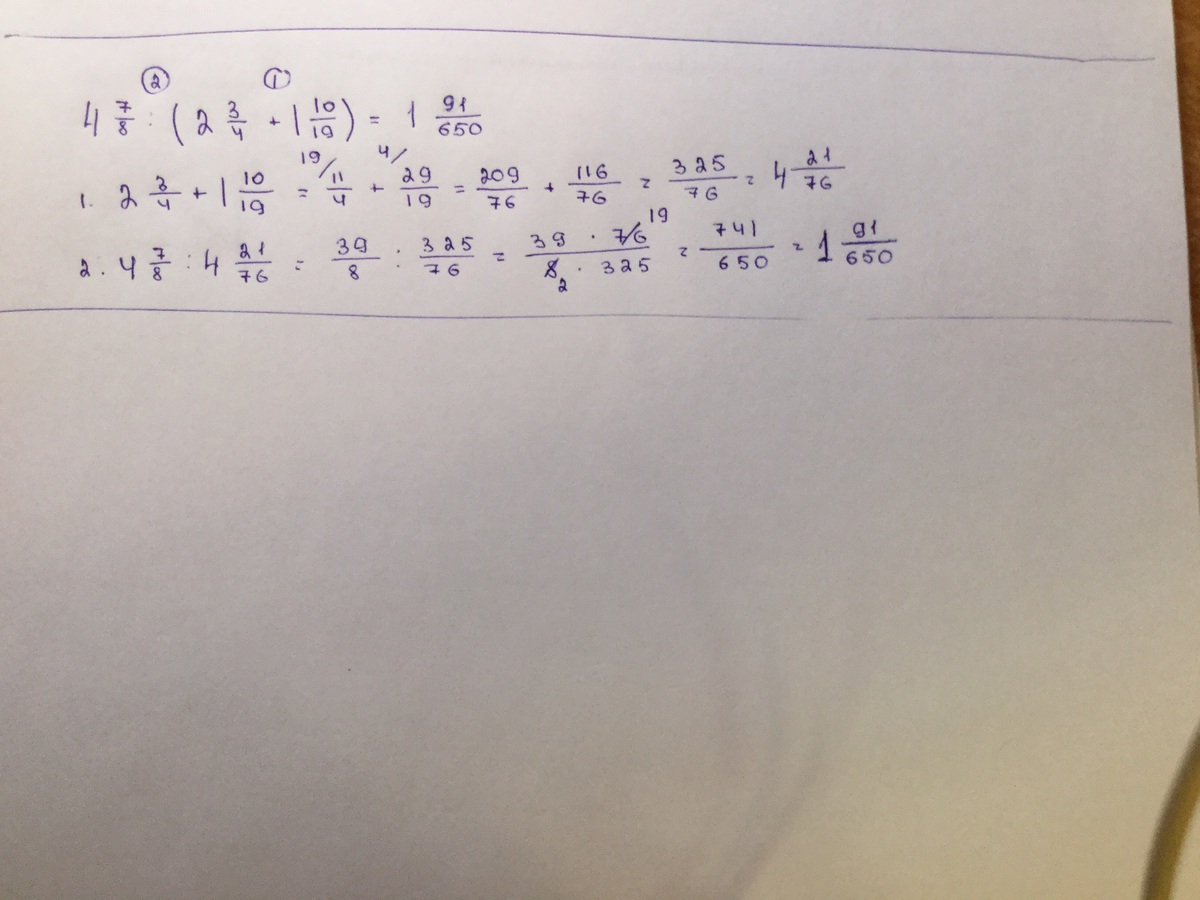 ② ①
4 7/8 : (2 3/4 + 1 10/19) = 1 91/650
1. 2 3/4 + 1 10/19 = 19/ 11/4 + 4/ 29/19 = 209/76 + 116/76 = 325/76 = 4 21/76
2. 4 7/8 : 4 21/76 = 39/8 : 325/76 = 39 · 76 19 / 8 2 · 325 = 741/650 = 1 91/650